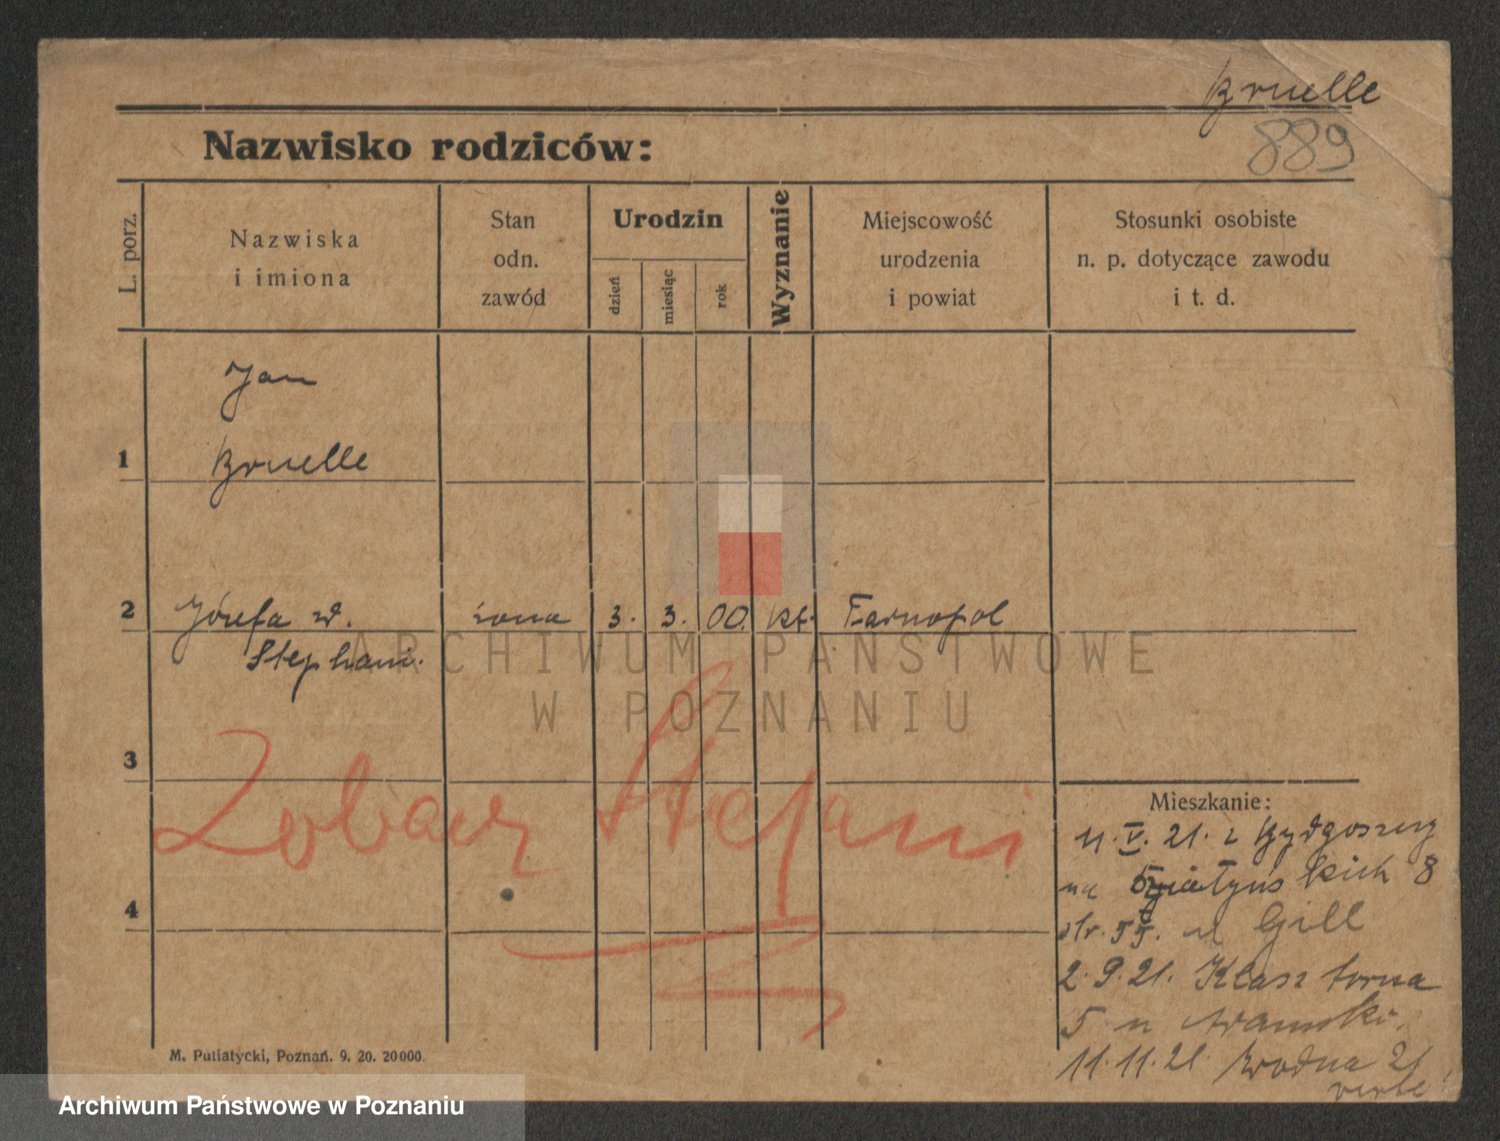 Bruelle
889
Nazwisko rodziców:
L. porz.
Nazwiska
i imiona
Stan
odn.
zawód
Urodzin
dzień
miesiąc
rok
Wyznanie
Miejscowość
urodzenia
i powiat
Stosunki osobiste
n. p. dotyczące zawodu
i t. d.
Jan
1 Bruelle
2 Józefa zd. żona 3. 3. 00. kt. Tarnopol
Stephani.
ARCHIWUM PAŃSTWOWE
W POZNANIU
3
Zobacz Stefani
4
Mieszkanie:
11. V. 21. z Bydgoszczy
na 8
str. u Gill
2. 9. 21. Klasztorna
5 u Adamski.
11. 11. 21. Wodna 21
verte!
M. Putiatycki, Poznań. 9. 20. 20000.
Archiwum Państwowe w Poznaniu